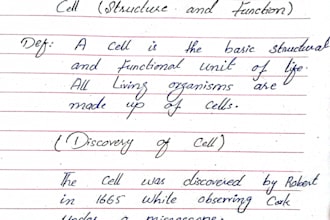 Cell (Structure and Function)
Def: A Cell is the basic structural
and functional unit of life.
All Living organisms are
made up of cells.
(Discovery of Cell)
The Cell was discovered by Robert
in 1665 while observing Cork
under a microscope.